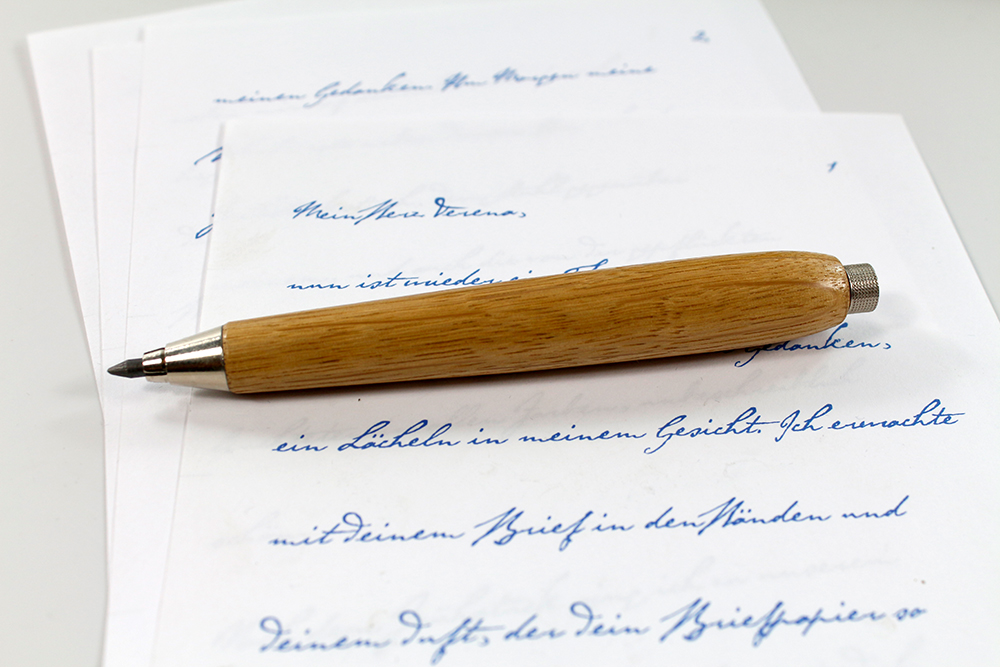 2.
meinen Gedanken. Am Morgen meine
1
Mein Herz Verena,
nun ist wieder ein
Gedanken,
ein Lächeln in meinem Gesicht. Ich erwachte
mit deinem Brief in den Händen und
deinem Duft, der dein Briefpapier so